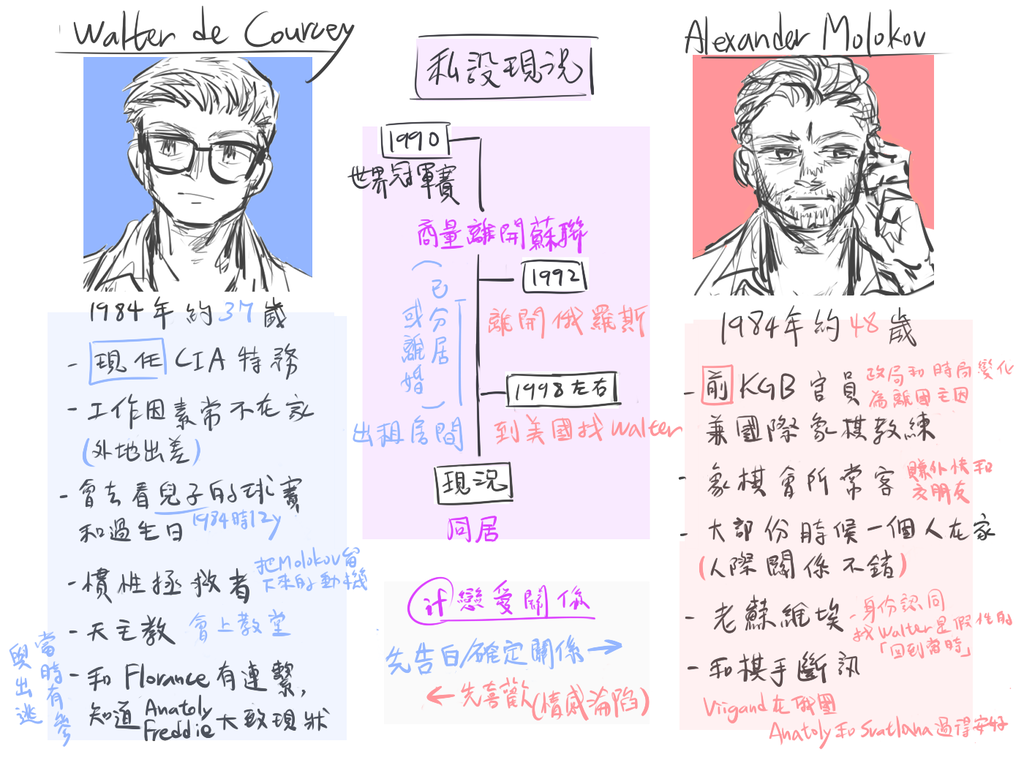 Walter de Courcey
1984年約37歲
- 現任 CIA特務
- 工作因素常不在家
(外地出差)
- 會去看兒子的球賽
和過生日
1984時12y
- 慣性拯救者
把Molokov留
下來的動機
- 天主教 會上教堂
- 和Florance有連繫,
知道Anatoly
Freddie大致現狀
當時有參
與出逃
私設現況
1990
世界冠軍賽
商量離開蘇聯
1992
離開俄羅斯
(已分居
或離婚)
1998左右
出租房間
到美國找Walter
現況
同居
if戀愛關係
先告白/確定關係→
←先喜歡(情感淪陷)
Alexander Molokov
1984年約48歲
- 前KGB官員
政局和時局變化
為離國主因
兼國際象棋教練
- 象棋會所常客
賺外快和
交朋友
- 大部份時候一個人在家
(人際關係不錯)
- 老蘇維埃
-身份認同
找Walter是假性的
「回到當時」
- 和棋手斷訊
Viigand在俄國
Anatoly和Svatlana過得安好